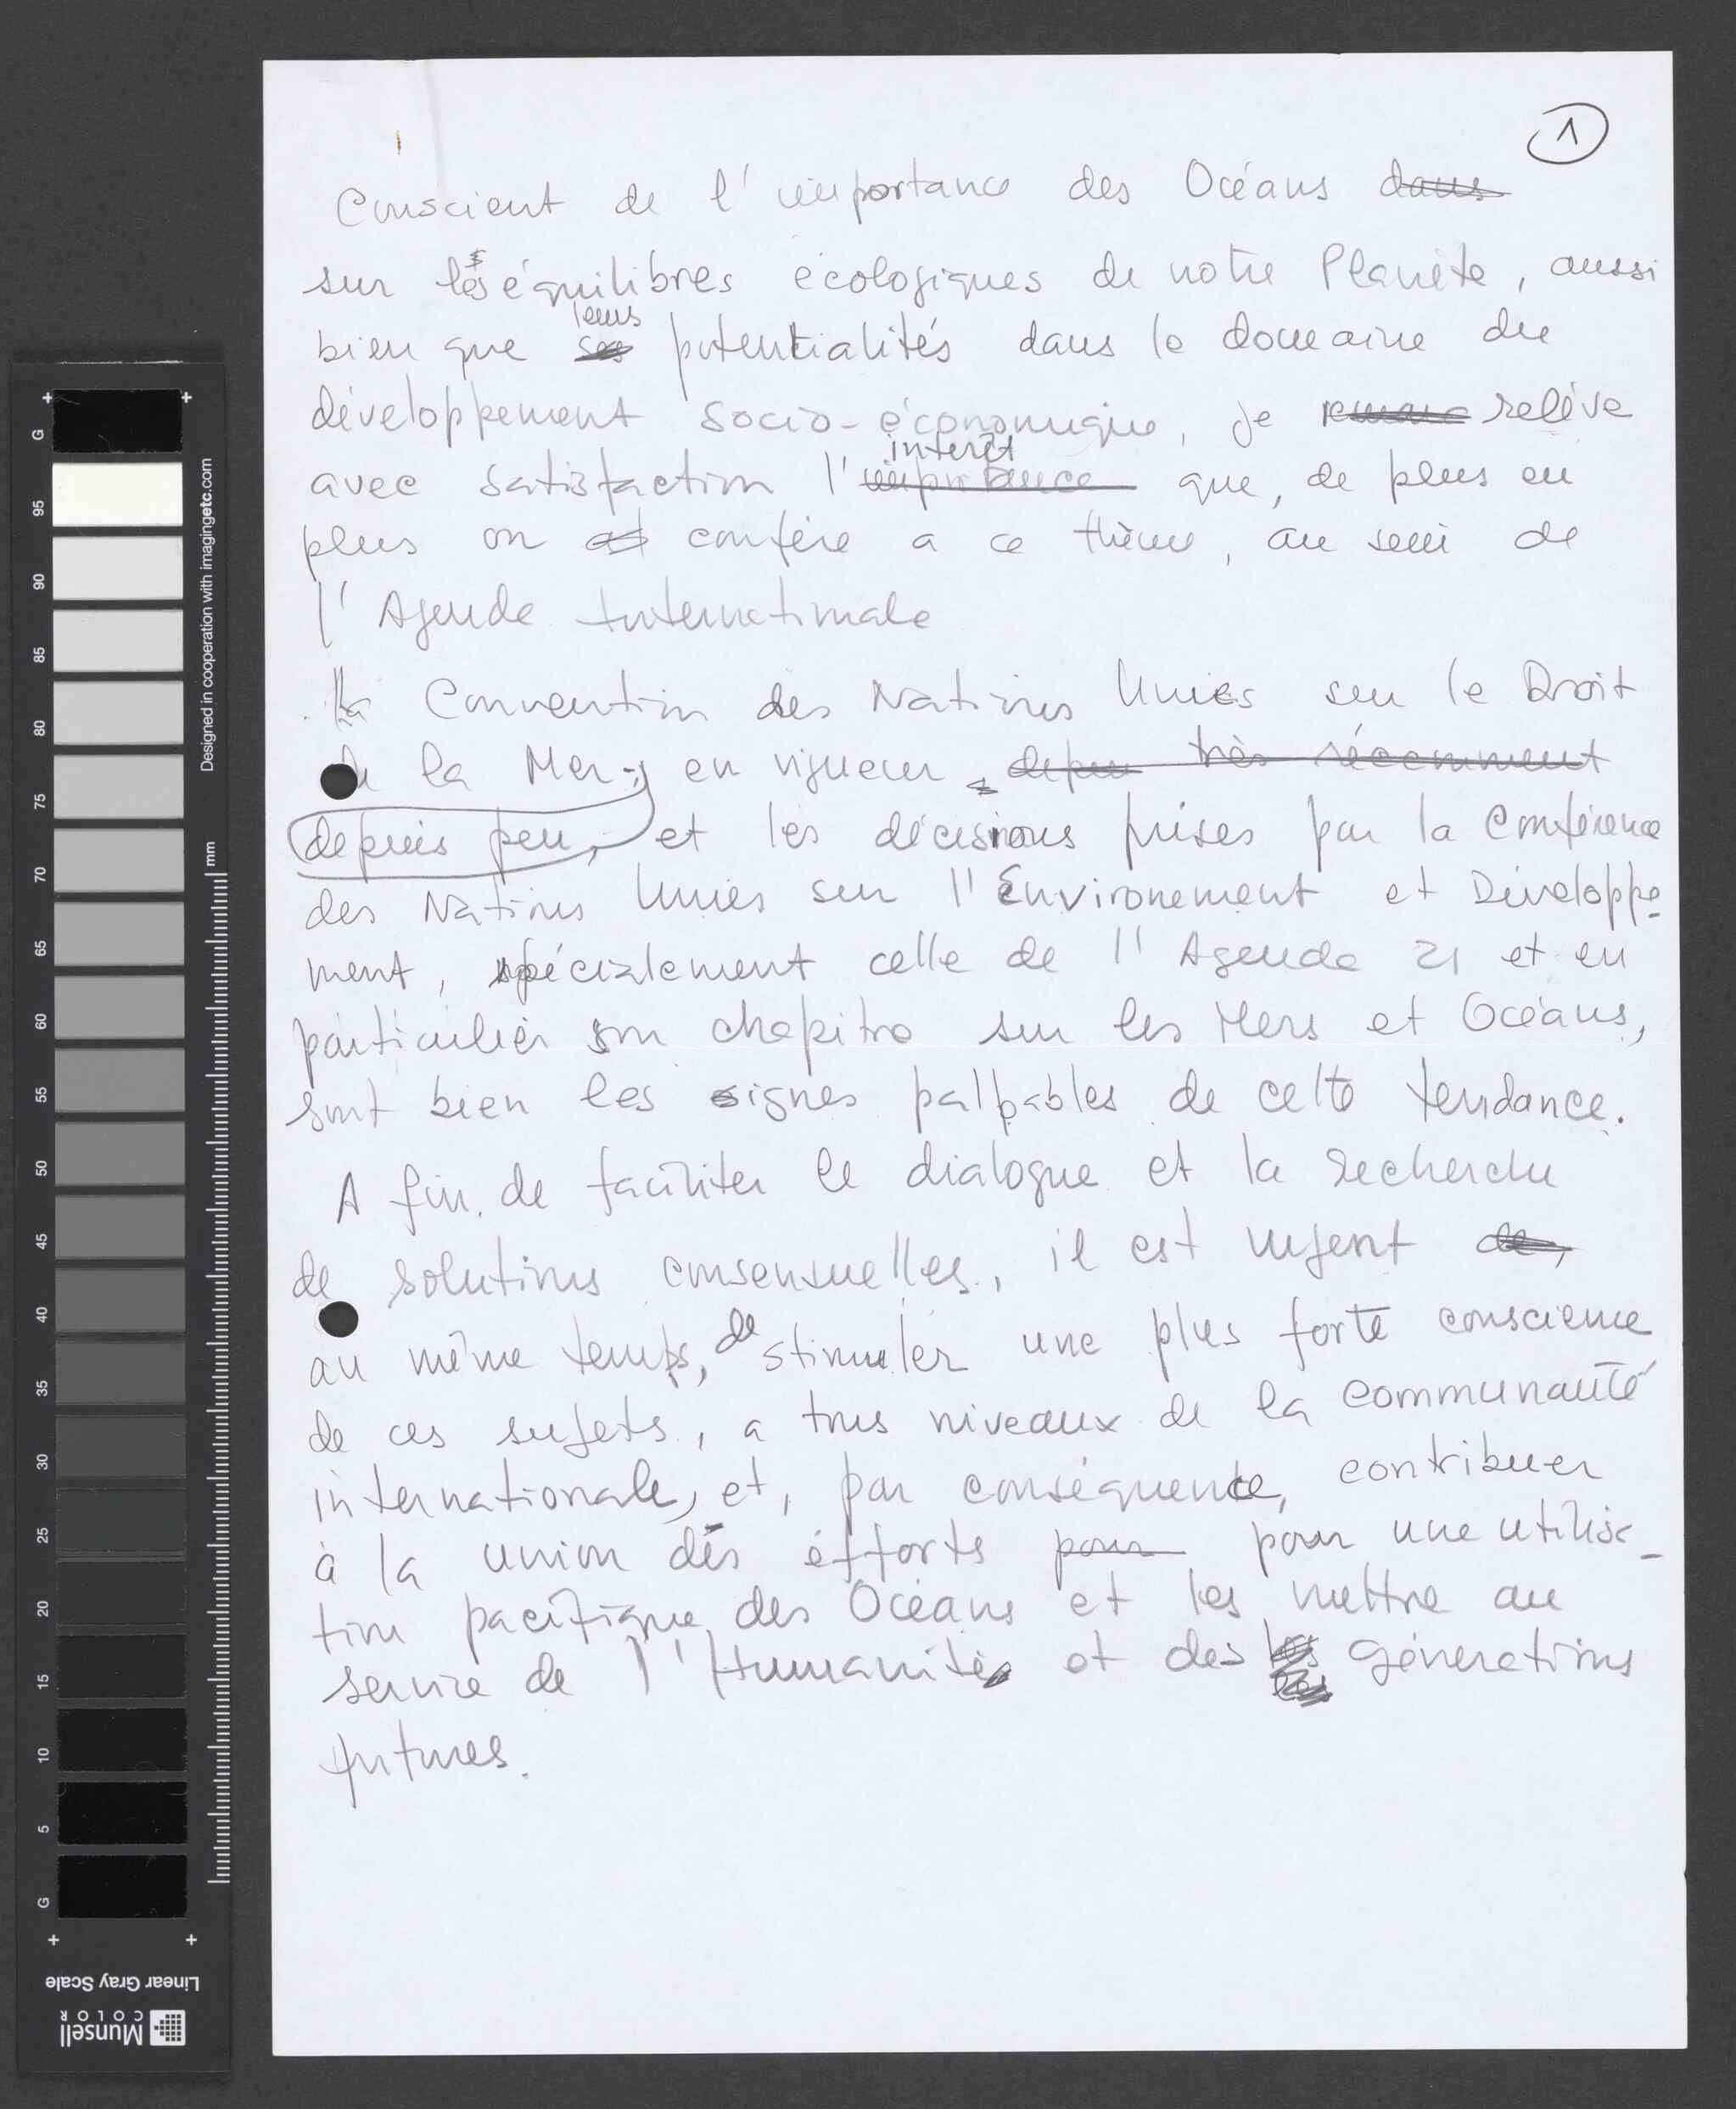 1
Conscient de l'importance des Océans dans
sur les équilibres écologiques de notre Planète, aussi
leurs
bien que ses potentialités dans le domaine du
développement socio-économique, je relève
intérêt
avec satisfaction l'importance que, de plus en
plus on confère a ce thème, au sein de
l'Agenda Internationale
La Convention des Nations Unies sur le Droit
de la Mer, en vigueur depuis très récemment
depuis peu, et les décisions prises par la Conférence
des Nations Unies sur l'Environement et Développe-
ment, spécialement celle de l'Agenda 21 et en
particulier son chapitre sur les Mers et Océans,
sont bien les signes palpables de cette tendance.
A fin de faciliter le dialogue et la recherche
de solutions consensuelles, il est urgent de,
au même temps, de stimuler une plus forte conscience
de ces sujets, a tous niveaux de la communauté
internationale, et, par conséquence, contribuer
à la union des éfforts pour pour une utilisa-
tion pacifique des Océans et les mettre au
service de l'Humanité et des les générations
futures.
G 95 90 85 80 75 70 65 60 55 50 45 40 35 30 25 20 15 10 5 G
Designed in cooperation with imagingetc.com
mm
Linear Gray Scale
Munsell
COLOR